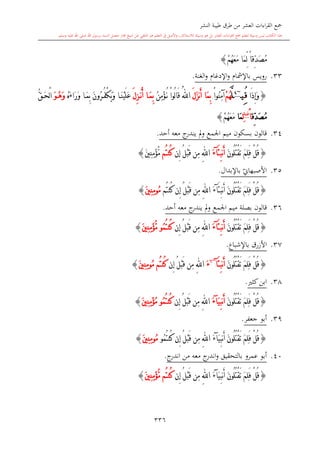 جمع القراءات العشر من طرق طيبة النشر
مُصَدِّقاً لِّمَا مَعَهُمْ ﴾
٣٣. رويس بالإشمام والإدغام والغنة.
﴿ وَإِذَا قِيلَ لَهُمْ ءَامِنُواْ بِمَآ أَنزَلَ اللهُ قَالُواْ نُؤْمِنُ بِمَآ أُنزِلَ عَلَيْنَا وَيَكْفُرُونَ بِمَا وَرَاءَهُ وَهُوَ الْحَقُّ
مُصَدِّقاً لِّمَا مَعَهُمْ ﴾
٣٤. قالون بسكون ميم الجمع ولم يندرج معه أحد.
﴿ قُلْ فَلِمَ تَقْتُلُونَ أَنبِئَآءَ اللهِ مِن قَبْلُ إِن كُنتُم مُّؤْمِنِينَ ﴾
٣٥. الأصبهاني بالإبدال.
﴿ قُلْ فَلِمَ تَقْتُلُونَ أَنبِئَآءَ اللهِ مِن قَبْلُ إِن كُنتُم مُّومِنِينَ ﴾
٣٦. قالون بصلة ميم الجمع ولم يندرج معه أحد.
﴿ قُلْ فَلِمَ تَقْتُلُونَ أَنبِئَآءَ اللهِ مِن قَبْلُ إِن كُنتُمُو مُّؤْمِنِينَ ﴾
٣٧. الأزرق بالإشباع.
﴿ قُلْ فَلِمَ تَقْتُلُونَ أَنبِئَآءَ اللهِ مِن قَبْلُ إِن كُنتُم مُّومِنِينَ ﴾
٣٨. ابن كثير.
﴿ قُلْ فَلِمَ تَقْتُلُونَ أَنبِيَآءَ اللهِ مِن قَبْلُ إِن كُنتُمُو مُّؤْمِنِينَ ﴾
٣٩. أبو جعفر.
﴿ قُلْ فَلِمَ تَقْتُلُونَ أَنبِيَآءَ اللهِ مِن قَبْلُ إِن كُنتُمُو مُّومِنِينَ ﴾
٤٠. أبو عمرو بالتحقيق واندرج معه من اندرج.
﴿ قُلْ فَلِمَ تَقْتُلُونَ أَنبِيَآءَ اللهِ مِن قَبْلُ إِن كُنتُم مُّؤْمِنِينَ ﴾
٣٣٦